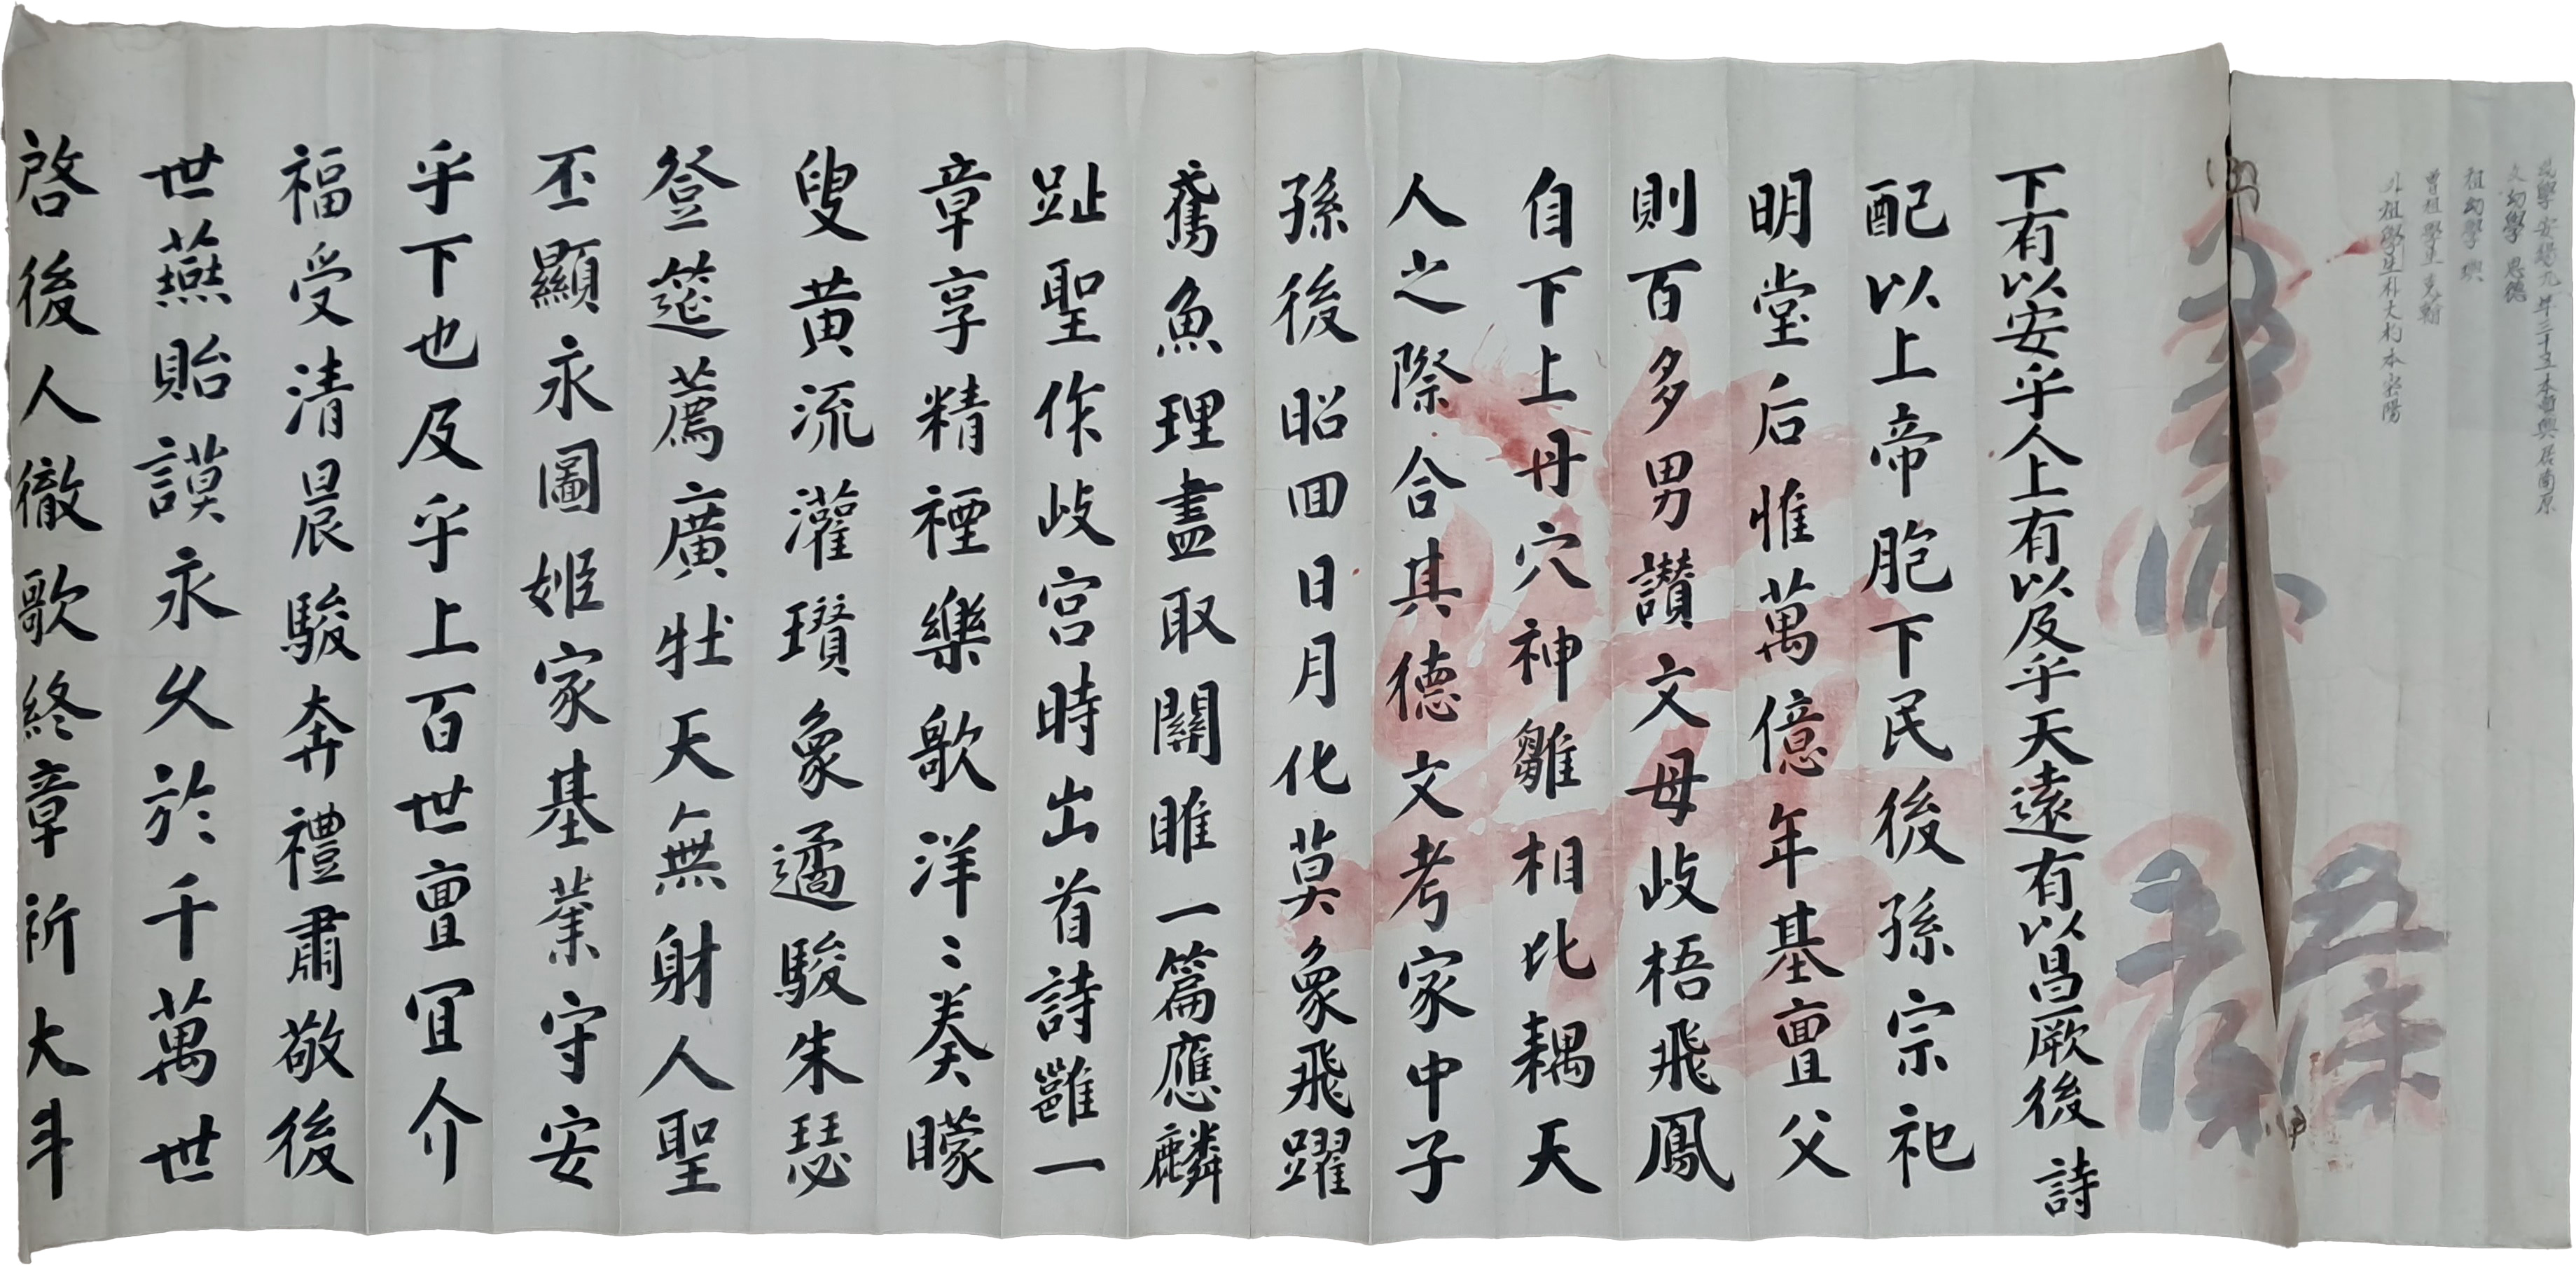 幼學安錫九年三十五本順興居南原
父幼學 思德
祖幼學 璵
曾祖學生 克翰
外祖學生朴大杓本密陽
下有以安乎人上有以及乎天遠有以昌厥後 詩
配以上帝胞下民後孫宗祀
明堂后惟萬億年基亶父
則百多男讚文母岐梧飛鳳
自下上丹穴神雛相比耦天
人之際合其德文考家中子
孫後昭回日月化莫象飛躍
鳶魚理盡取關雎一篇應麟
趾聖作岐宮時出首詩雝一
章享精禋樂歌洋〻奏矇
叟黃流灌瓚象遹駿朱瑟
登筵薦廣牡天無射人聖
丕顯永圖姬家基業守安
乎下也及乎上百世亶宜介
福受清晨駿奔禮肅敬後
世燕貽謨永久於千萬世
啓後人徹歌終章祈大斗